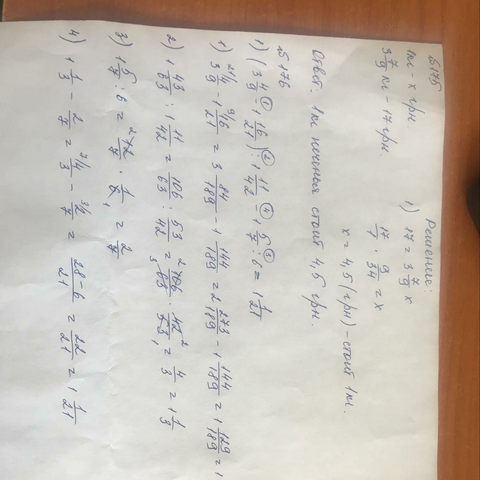 S175
Решение:
1кг - x грн
3 7/9 кг - 17 грн
1) 17 = 3 7/9 x
17/1 · 9/34 = x
x = 4,5 (грн) - стоит 1кг.
Ответ. 1кг печенья стоит 4,5 грн.
S176
1) (3 4/9 - 1 16/21) : 1 11/42 - 1 5/7 : 6 = 1 1/21
1) 3 4/9 - 1 16/21 = 3 84/189 - 1 144/189 = 2 273/189 - 1 144/189 = 1 129/189 = 1
2) 1 43/63 : 1 11/42 = 106/63 : 53/42 = 106/63 · 42/53 = 4/3 = 1 1/3
3) 1 5/7 : 6 = 12/7 · 1/6 = 2/7
4) 1 1/3 - 2/7 = 4/3 - 2/7 = 28-6/21 = 22/21 = 1 1/21